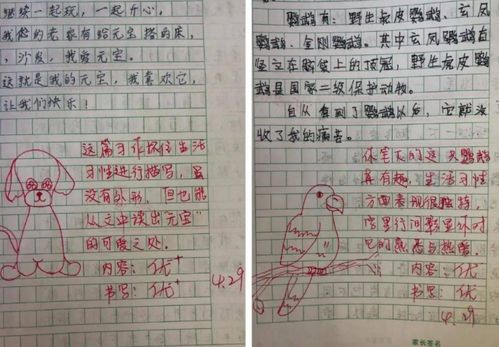 继续一起玩，一起开心。
我俩的老爸有给元宝搭的床，
，沙发，我给元宝
这就是我的元宝，我喜欢它，
让我们快乐！
这篇习作抓住生活
习性进行描写，虽
没有外形，但也能
从文中读出“元宝”
的可爱之处。
内容：优+
书写：优+
4.29
鹦鹉有：野生虎皮鹦鹉、玄风
鹦鹉、金刚鹦鹉。其中玄风鹦鹉有
竖立在脑袋上的顶冠，野生虎皮鹦
鹉是国家二级保护动物。
自从看到了鹦鹉以后，它就没
收了我的痛苦。
你笔下的这只鹦鹉
真有趣，生活习性
方面表现很独特，
字里行间数里你对
它的熟悉与热爱。
内容：优
书写：优
4.29
家长签名